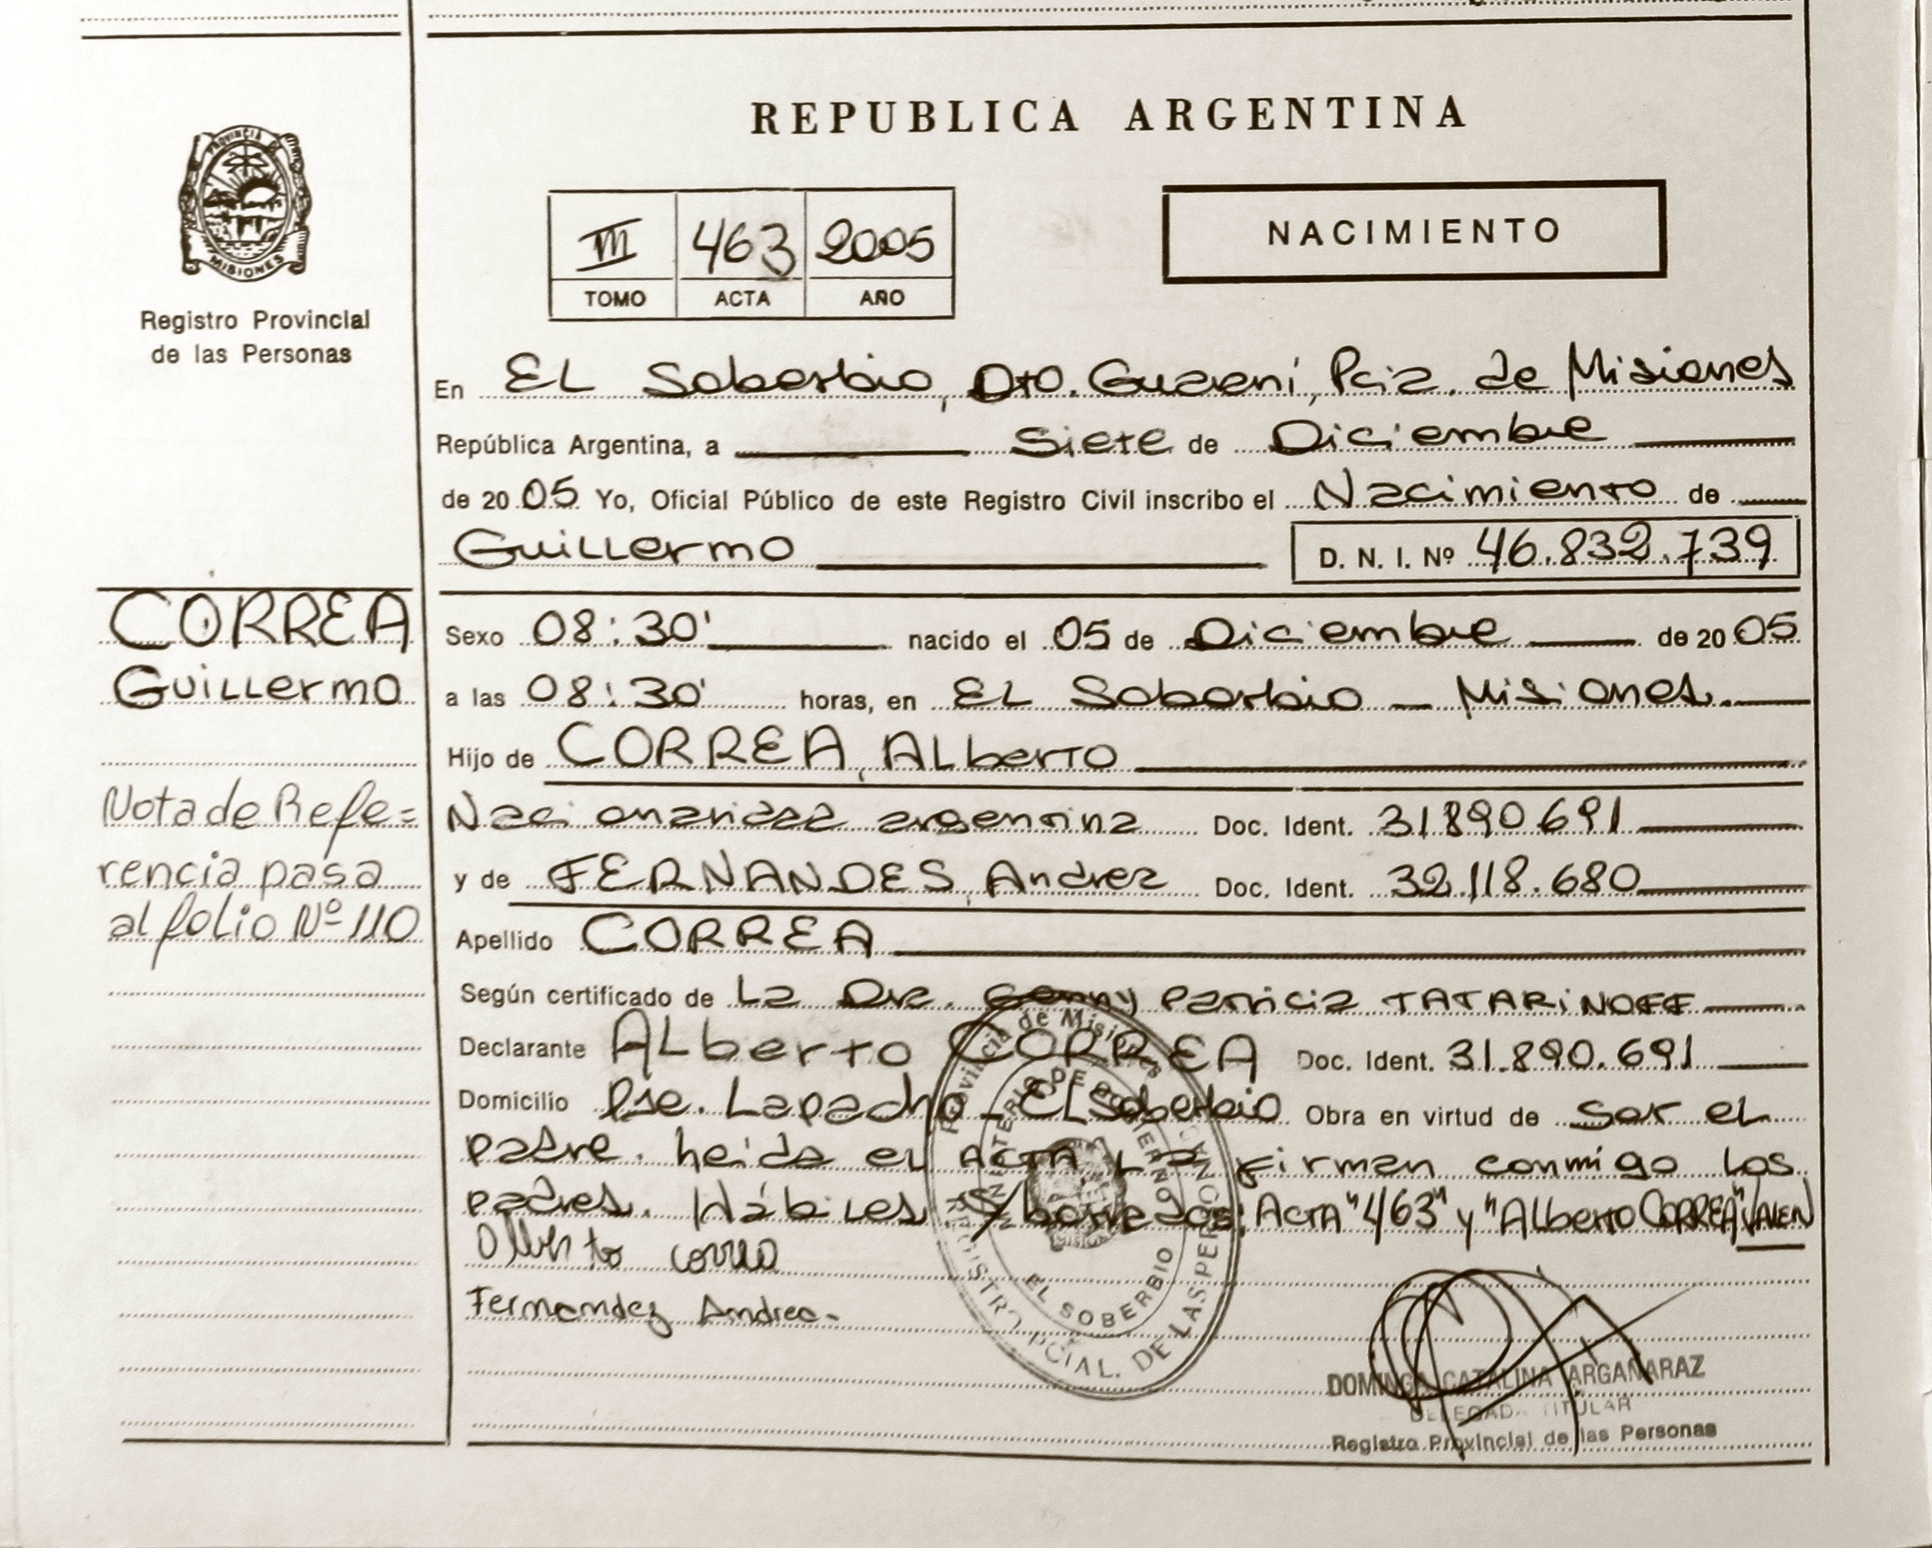 REPUBLICA ARGENTINA
PROVINCIA DE
MISIONES
Registro Provincial
de las Personas
III 463 2005
TOMO ACTA AÑO
NACIMIENTO
En EL Soberbio, Dto. Guaraní, Pcia. de Misiones
República Argentina, a Siete de Diciembre
de 2005 Yo, Oficial Público de este Registro Civil inscribo el Nacimiento de
Guillermo D. N. I. Nº 46.832.739
CORREA
Guillermo
Nota de Refe=
rencia pasa
al folio Nº 110
Sexo 08:30' nacido el 05 de Diciembre de 2005
a las 08:30' horas, en EL Soberbio - Misiones.
Hijo de CORREA, ALberto
Nacionalidad argentina Doc. Ident. 31.890.691
y de FERNANDES, Andrea Doc. Ident. 32.118.680
Apellido CORREA
Según certificado de La Dra. Genny Patricia TATARiNOFF
Declarante ALberto CORREA Doc. Ident. 31.890.691
Domicilio Pje. Lapacho - EL Soberbio Obra en virtud de ser el
padre. heida el ACTA La firman conmigo los
padres. Hábiles S/borrados: Acta "463" y "Alberto CORREA" VALEN
Alberto correa
Fernandez Andrea-
Provincia de Misiones
MINISTERIO DE GOBIERNO
EL SOBERBIO
REGISTRO PCIAL. DE LAS PERSONAS
DOMINGA CATALINA ARGAÑARAZ
DELEGADA TITULAR
Registro Provincial de las Personas